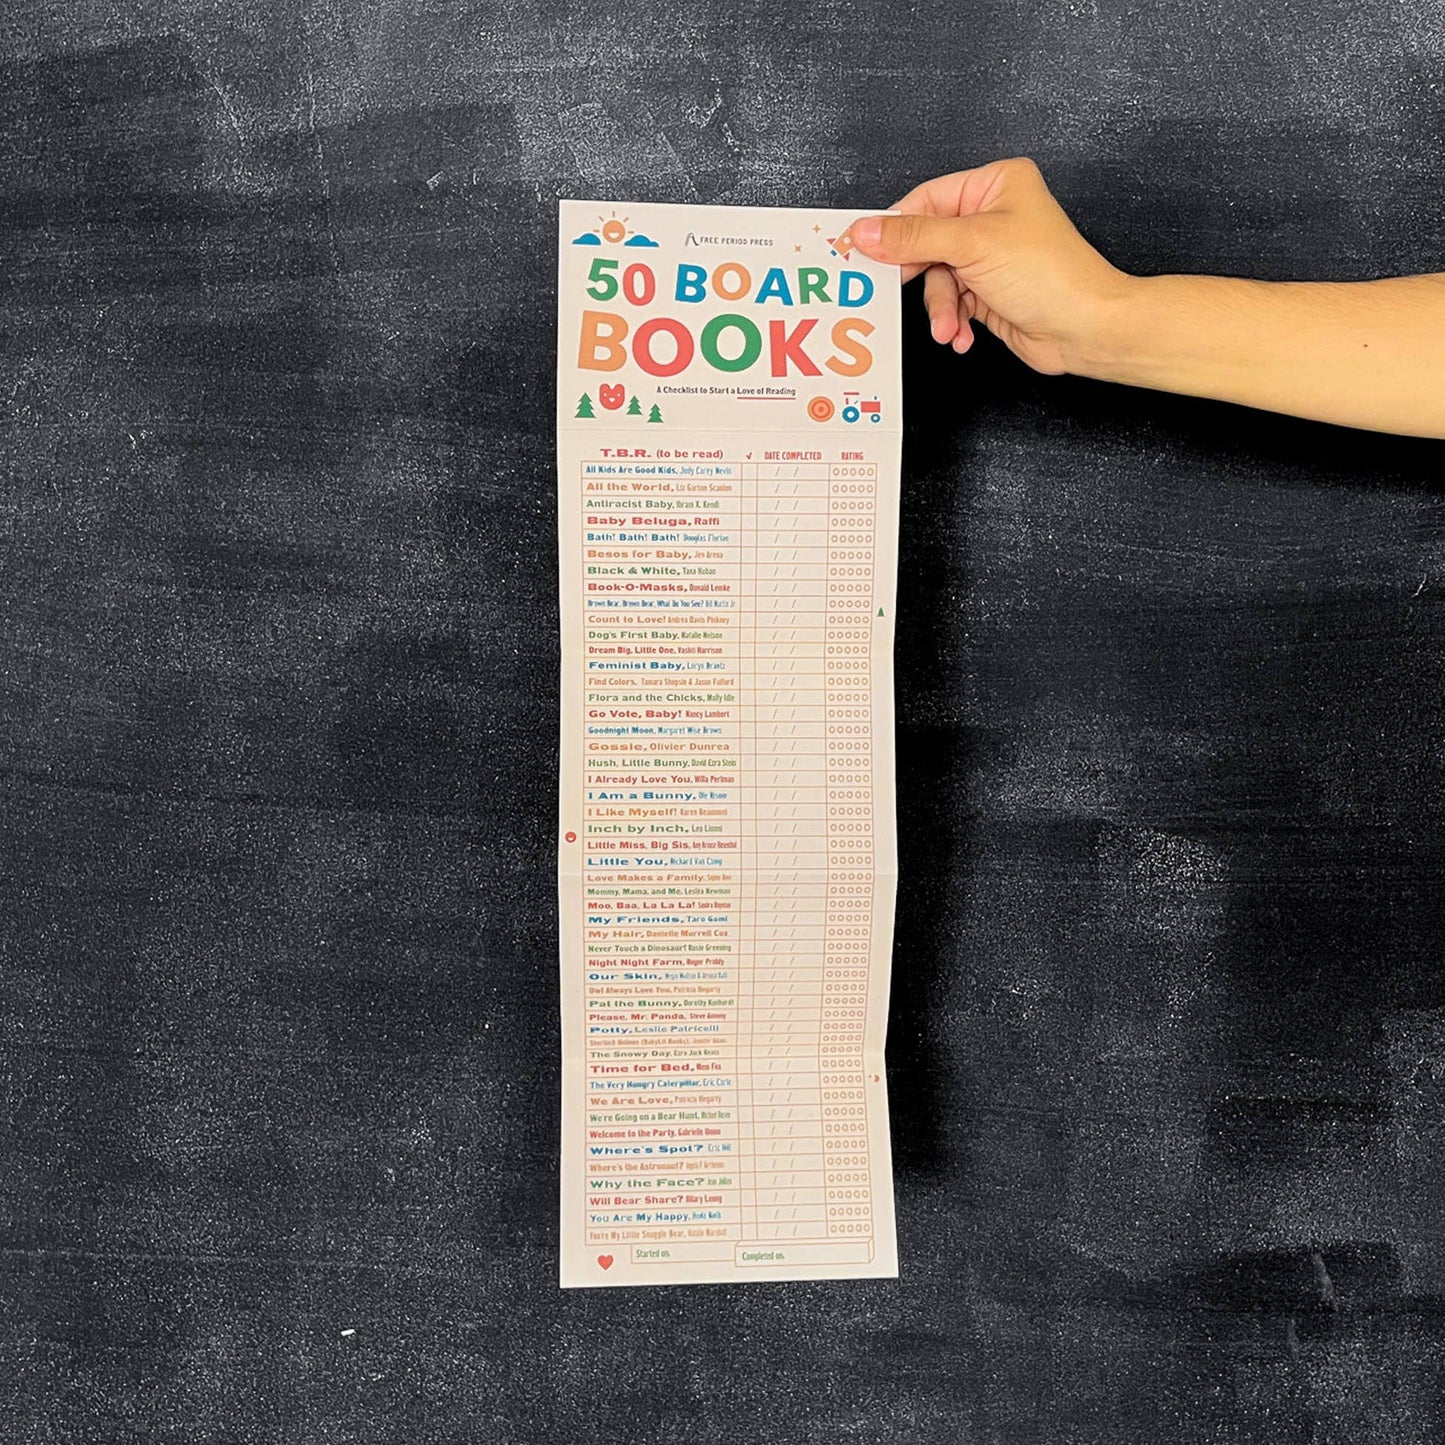 FREE PERIOD PRESS
50 BOARD
BOOKS
A Checklist to Start a Love of Reading
T.B.R. (to be read) √ DATE COMPLETED RATING
All Kids Are Good Kids, Judy Carey Nevin / /
All the World, Liz Garton Scanlon / /
Antiracist Baby, Ibram X. Kendi / /
Baby Beluga, Raffi / /
Bath! Bath! Bath! Douglas Florian / /
Besos for Baby, Jen Arena / /
Black & White, Tana Hoban / /
Book-O-Masks, Donald Lemke / /
Brown Bear, Brown Bear, What Do You See? Bill Martin Jr / /
Count to Love! Andrea Davis Pinkney / /
Dog's First Baby, Natalie Nelson / /
Dream Big, Little One, Vashti Harrison / /
Feminist Baby, Loryn Brantz / /
Find Colors, Tamara Shopsin & Jason Fulford / /
Flora and the Chicks, Molly Idle / /
Go Vote, Baby! Nancy Lambert / /
Goodnight Moon, Margaret Wise Brown / /
Gossie, Olivier Dunrea / /
Hush, Little Bunny, David Ezra Stein / /
I Already Love You, Willa Perlman / /
I Am a Bunny, Ole Risom / /
I Like Myself! Karen Beaumont / /
Inch by Inch, Leo Lionni / /
Little Miss, Big Sis, Amy Krouse Rosenthal / /
Little You, Richard Van Camp / /
Love Makes a Family, Sophie Beer / /
Mommy, Mama, and Me, Leslea Newman / /
Moo, Baa, La La La! Sandra Boynton / /
My Friends, Taro Gomi / /
My Hair, Danielle Murrell Cox / /
Never Touch a Dinosaur! Rosie Greening / /
Night Night Farm, Roger Priddy / /
Our Skin, Megan Madison & Jessica Ralli / /
Owl Always Love You, Patricia Hegarty / /
Pat the Bunny, Dorothy Kunhardt / /
Please, Mr. Panda, Steve Antony / /
Potty, Leslie Patricelli / /
Sherlock Holmes (BabyLit Books), Jennifer Adams / /
The Snowy Day, Ezra Jack Keats / /
Time for Bed, Mem Fox / /
The Very Hungry Caterpillar, Eric Carle / /
We Are Love, Patricia Hegarty / /
We're Going on a Bear Hunt, Michael Rosen / /
Welcome to the Party, Gabrielle Union / /
Where's Spot? Eric Hill / /
Where's the Astronaut? / /
Why the Face? Jean Jullien / /
Will Bear Share? Hilary Leung / /
You Are My Happy, Hoda Kotb / /
You're My Little Snuggle Bear, Natalie Marshall / /
Started on. Completed on.